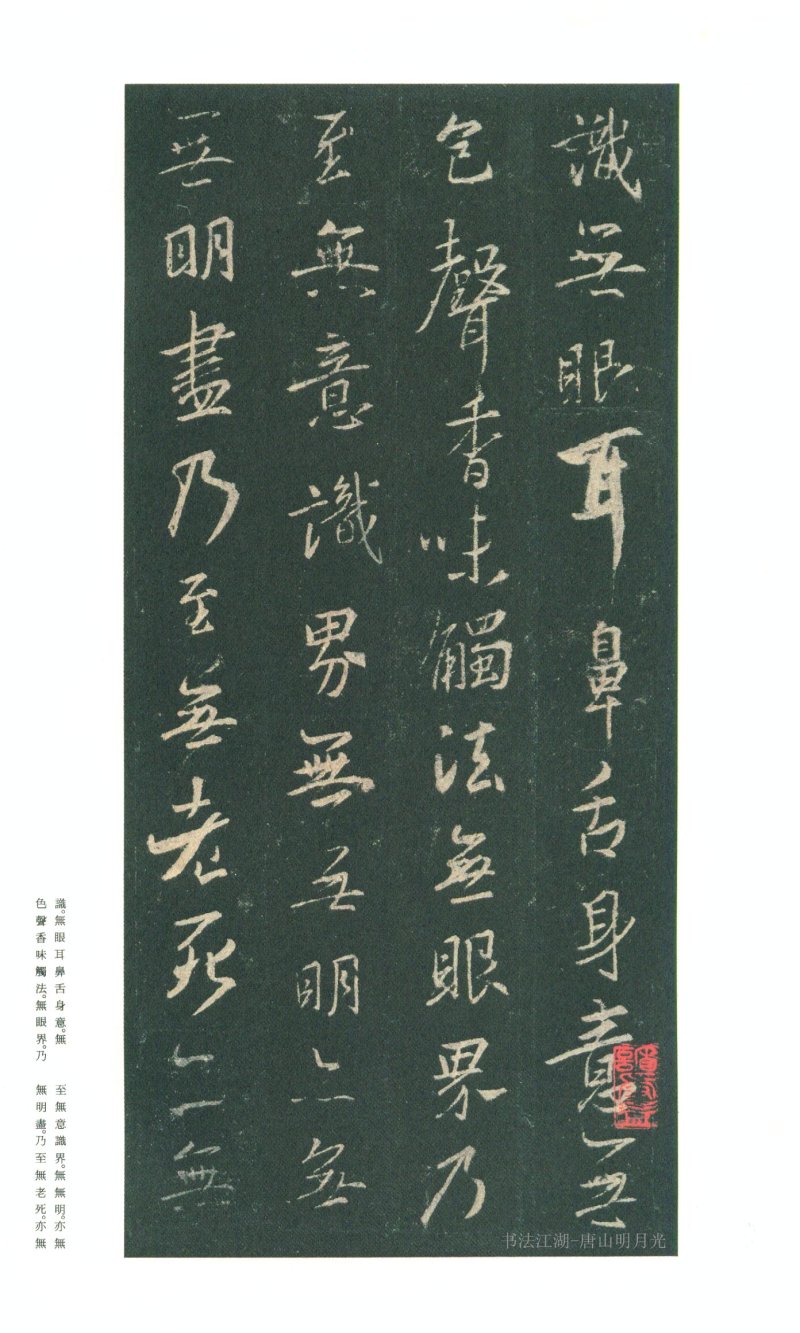 識無眼耳鼻舌身意無
色聲香味觸法無眼界乃
至無意識界無無明亦無
無明盡乃至無老死亦無
識。無眼耳鼻舌身意。無
色聲香味觸法。無眼界。乃
至無意識界。無無明。亦無
無明盡。乃至無老死。亦無
书法江湖-唐山明月光